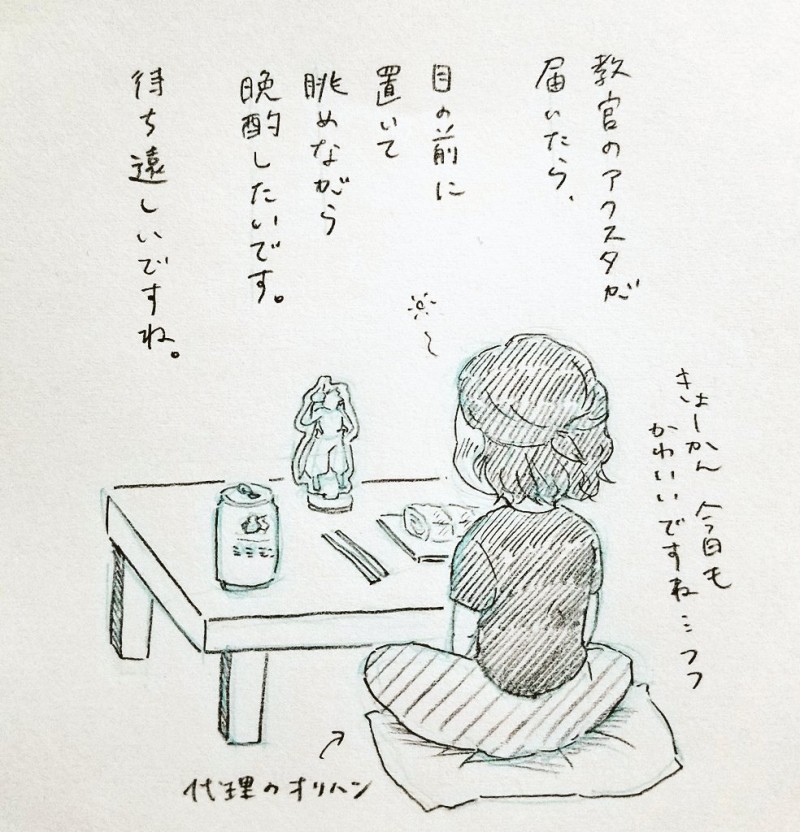 教官のアクスタが
届いたら、
目の前に
置いて
眺めながら
晩酌したいです。
待ち遠しいですね。
きょーかん 今日も
かわいいですね…フフ
代理のオリハン